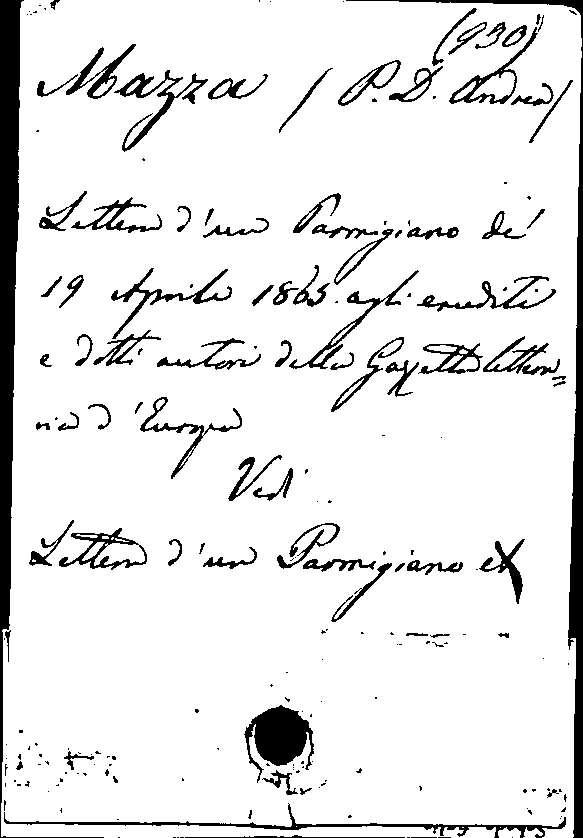 (930)
Mazza / P. D. Andrea /
Lettera d'un Parmigiano de'
19 Aprile 1865. agli eruditi
e dotti autori della Gazzetta lettera=
ria d'Europa
Vedi
Lettera d'un Parmigiano ex